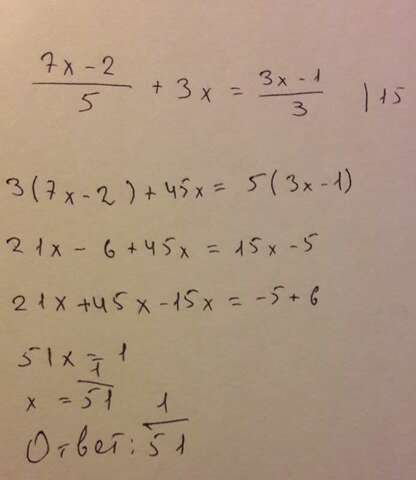 (7x-2)/5 + 3x = (3x-1)/3 |15
3(7x-2)+45x= 5(3x-1)
21x - 6 +45x = 15x-5
21x+45x-15x = -5+6
51x = 1
x = 1/51
Ответ: 1/51